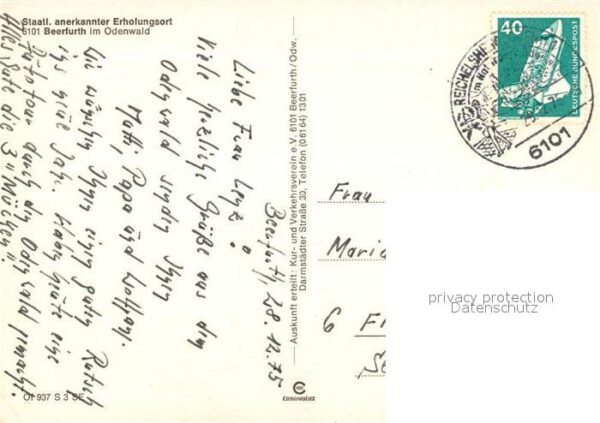 Staatl. anerkannter Erholungsort
6101 Beerfurth im Odenwald
Beerfurth, 28.12.75
Liebe Frau Lenz!
Viele herzliche Grüße aus dem
Odenwald senden Ihnen
Mutti, Papa und
Wir wünschen Ihnen einen guten Rutsch
ins neue Jahr. Haben heute eine
durch den Odenwald gemacht.
Alles Gute die 3 "
Auskunft erteilt: Kur- und Verkehrsverein e.V. 6101 Beerfurth/Odw.
Darmstädter Straße 30, Telefon (06164) 1301
40
DEUTSCHE BUNDESPOST
REICHELSHE
6101
Frau
Maria
6 F
privacy protection
Datenschutz
Of 937 S 3 SE
CHROMOLUX